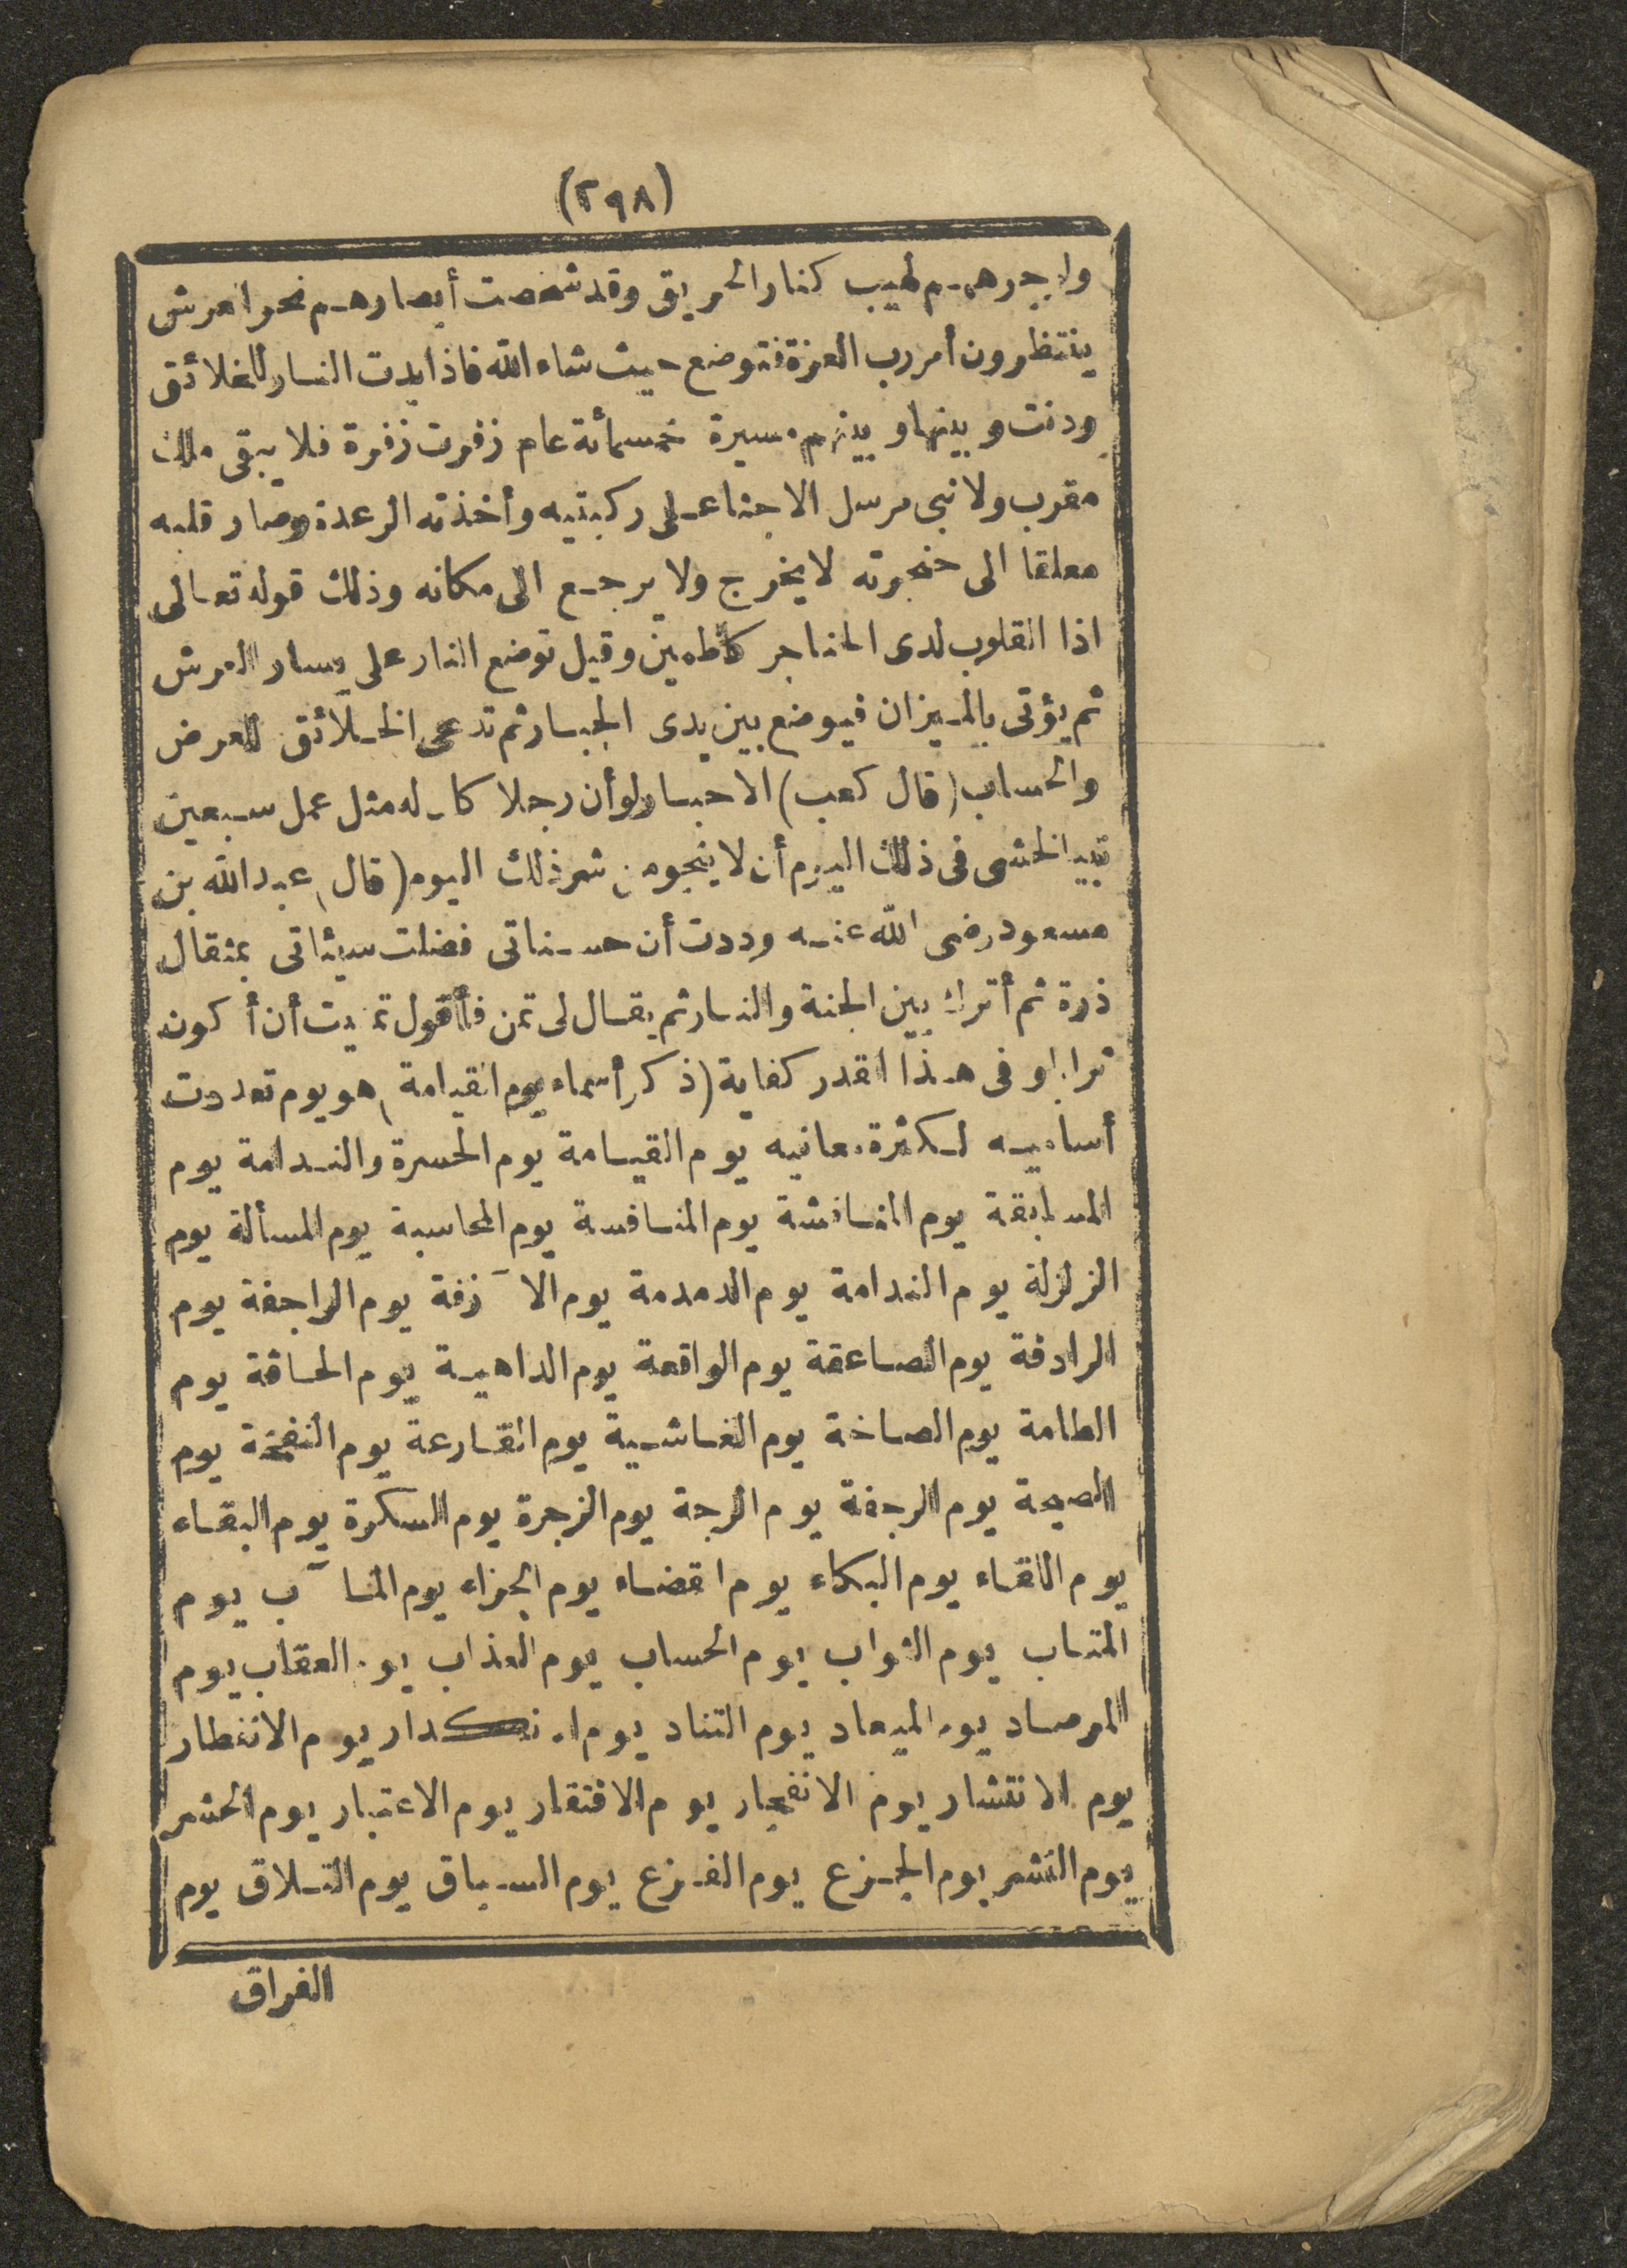 (٢٩٨)
ولاجوافهم لهيب كنار الحريق وقد شخصت أبصارهم نحو العرش
ينتظرون أمر رب العزة فتوضع حيث شاء الله فاذا بدت النار للخلائق
ودنت وبينها وبينهم مسيرة خمسمائة عام زفرت زفرة فلا يبقى ملك
مقرب ولا نبى مرسل الا جثا على ركبتيه وأخذته الرعدة وصار قلبه
معلقا الى حنجرته لا يخرج ولا يرجع الى مكانه وذلك قوله تعالى
اذا القلوب لدى الحناجر كاظمين وقيل توضع النار على يسار العرش
ثم يؤتى بالميزان فيوضع بين يدى الجبار ثم تدعى الخلائق للعرض
والحساب (قال كعب) الاحبار لو أن رجلا كان له مثل عمل سبعين
نبيا لخشى فى ذلك اليوم أن لا ينجو من شر ذلك اليوم (قال) عبد الله بن
مسعود رضى الله عنه وددت أن حسناتى فضلت سيئاتى بمثقال
ذرة ثم أترك بين الجنة والنار ثم يقال لى تمن فأقول تمنيت أن أكون
ترابا وفى هذا القدر كفاية (ذكر أسماء يوم القيامة) هو يوم تعددت
أساميه لكثرة معانيه يوم القيامة يوم الحسرة والندامة يوم
المسابقة يوم المناقشة يوم المنافسة يوم المحاسبة يوم المسألة يوم
الزلزلة يوم الندامة يوم الدمدمة يوم الآزفة يوم الراجفة يوم
الرادفة يوم الصاعقة يوم الواقعة يوم الداهية يوم الحاقة يوم
الطامة يوم الصاخة يوم الغاشية يوم القارعة يوم النفخة يوم
الصيحة يوم الرجفة يوم الرجة يوم الزجرة يوم السكرة يوم البقاء
يوم اللقاء يوم البكاء يوم القضاء يوم الجزاء يوم المآب يوم
المتاب يوم الثواب يوم الحساب يوم العذاب يوم العقاب يوم
المرصاد يوم الميعاد يوم التناد يوم الانكدار يوم الانفطار
يوم الانتشار يوم الانفجار يوم الافتقار يوم الاعتبار يوم الحشر
يوم النشر يوم الجزع يوم الفزع يوم السباق يوم التلاق يوم
الفراق